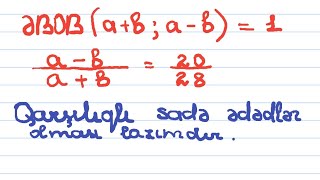 ƏBOB(a+b; a-b) = 1
a-b/a+b = 20/28
Qarşılıqlı sadə ədədlər
olması lazımdır.